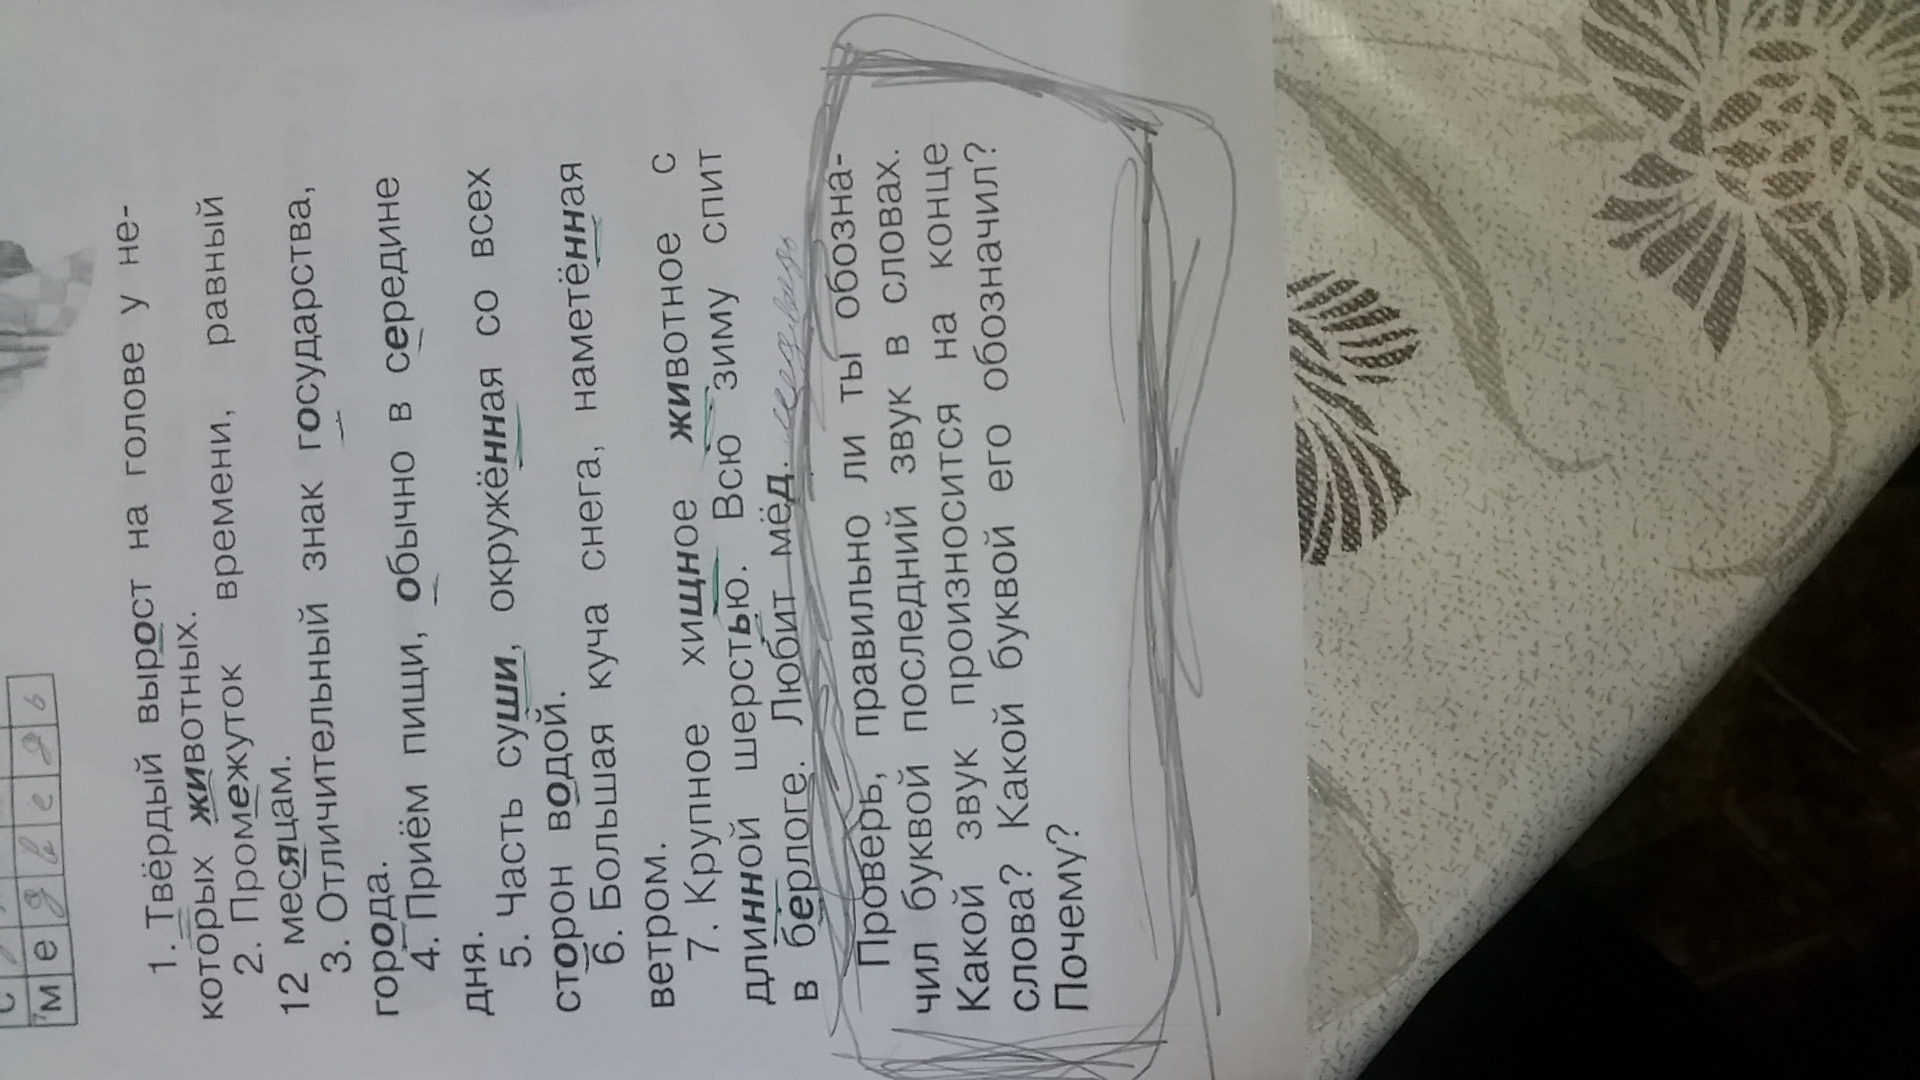 с
7м е д в е д ь
1. Твёрдый вырост на голове у не-
которых животных.
2. Промежуток времени, равный
12 месяцам.
3. Отличительный знак государства,
города.
4. Приём пищи, обычно в середине
дня.
5. Часть суши, окружённая со всех
сторон водой.
6. Большая куча снега, наметённая
ветром.
7. Крупное хищное животное с
длинной шерстью. Всю зиму спит
в берлоге. Любит мёд. медведь
Проверь, правильно ли ты обозна-
чил буквой последний звук в словах.
Какой звук произносится на конце
слова? Какой буквой его обозначил?
Почему?